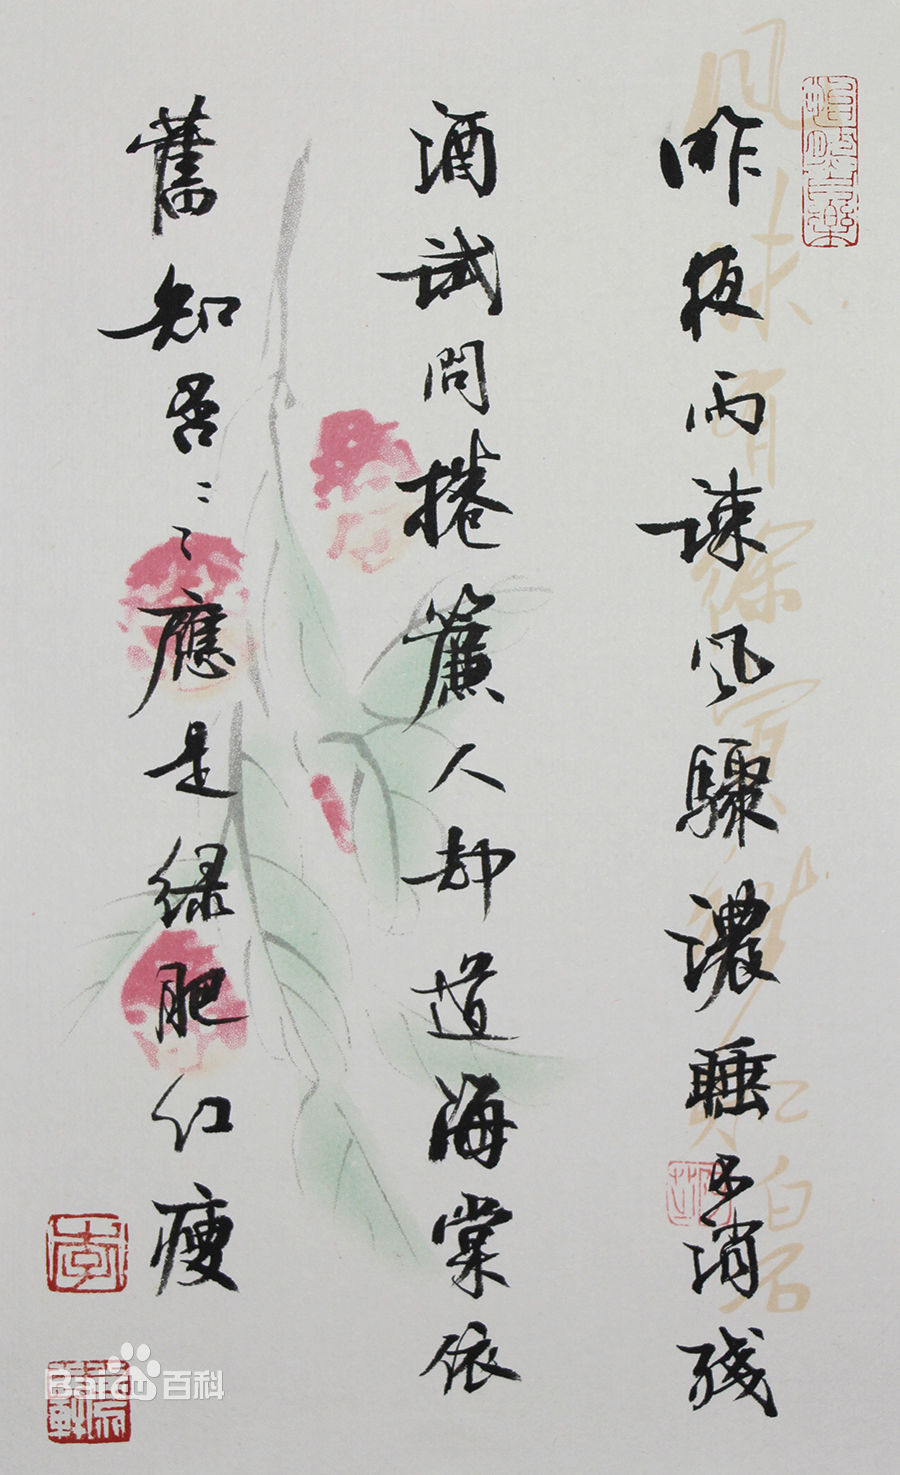 昨夜雨疎風驟濃睡不消殘
酒試問捲簾人却道海棠依
舊知否〻〻應是綠肥紅瘦
Baidu百科